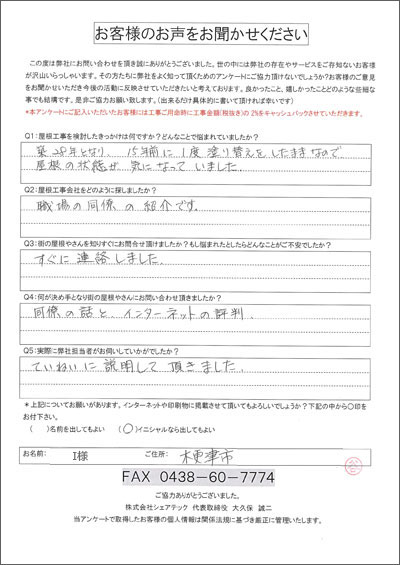 お客様のお声をお聞かせください
この度は弊社にお問い合わせを頂き誠にありがとうございました。世の中には弊社の存在やサービスをご存知ないお客様
が沢山いらっしゃいます。その方たちに弊社をよく知って頂くためのアンケートにご協力頂けないでしょうか?お客様のご意見
をお聞かせいただき今後の活動に反映させていただきたいと考えております。良かったこと、嬉しかったことどのような些細な
事でも結構です。是非ご協力お願い致します。(出来るだけ具体的に書いて頂ければ幸いです)
*本アンケートにご記入いただいたお客様には工事ご用命時に工事金額(税抜き)の2%をキャッシュバックさせていただきます。
Q1:屋根工事を検討したきっかけは何ですか?どんなことで悩まれていましたか?
築28年となり、15年前に1度塗り替えをしたままなので、
屋根の状態が気になっていました。
Q2:屋根工事会社をどのように探しましたか?
職場の同僚の紹介です。
Q3:街の屋根やさんを知りすぐにお問合せ頂けましたか?もし悩まれたとしたらどんなことがご不安でしたか?
すぐに連絡しました。
Q4:何が決め手となり街の屋根やさんにお問い合わせ頂きましたか?
同僚の話と、インターネットの評判。
Q5:実際に弊社担当者がお伺いしていかがでしたか?
ていねいに説明して頂きました。
*上記についてお願いがあります。インターネットや印刷物に掲載させて頂いてもよろしいでしょうか?下記の中から〇印を
お付下さい。
( )名前を出してもよい (〇)イニシャルなら出してもよい
お名前: I様 ご住所: 木更津市
FAX 0438-60-7774
ご協力ありがとうございました。
株式会社シェアテック 代表取締役 大久保 誠二
当アンケートで取得したお客様の個人情報は関係法規に基づき厳正に管理いたします。